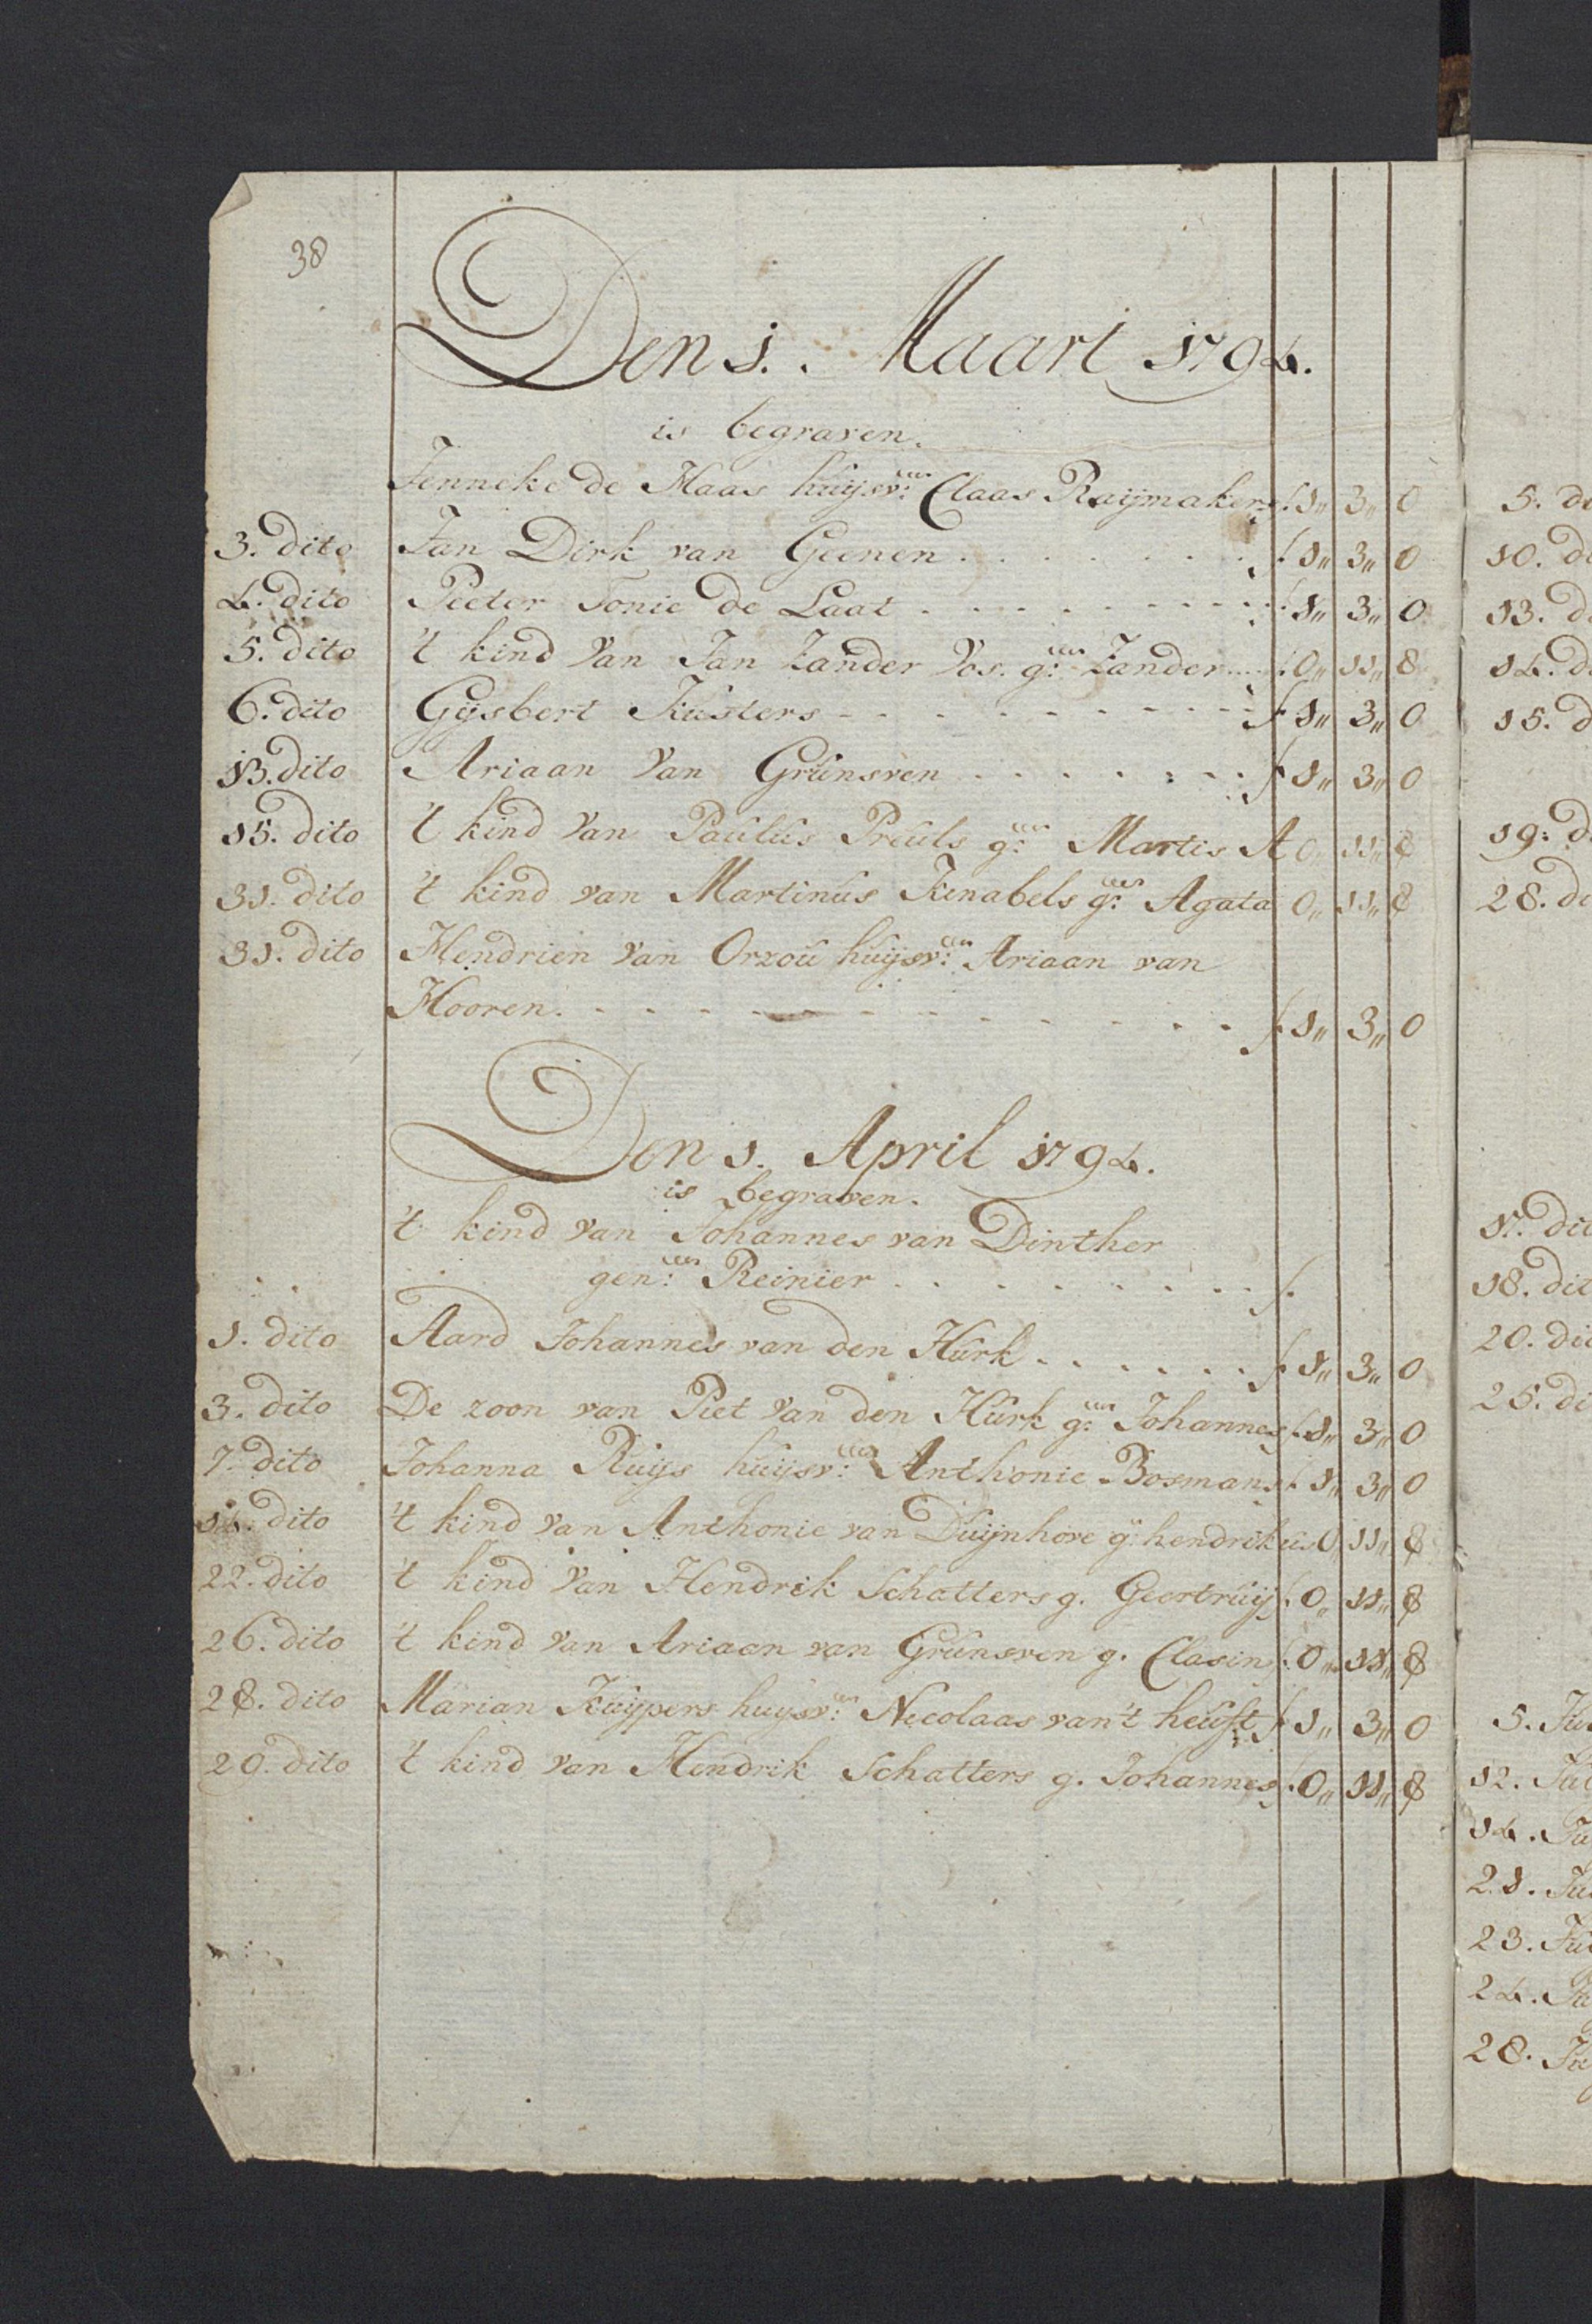 38
Den 1. Maart 1794.
is begraven.
Jenneke de Haas huijsv: Claas Raijmakers f 1,, 3,, 0
3. dito Jan Dirk van Geenen . . . . . . . f 1,, 3,, 0
4. dito Peeter Tonie de Laat . . . . . . . . . f 1,, 3,, 0
5. dito 't kind van Jan Zander Vos. g: Zander .... f 0,, 11,, 8
6. dito Gijsbert Kusters - - . . . . . . . f 1,, 3,, 0
13. dito Ariaan van Grunsven . . . . . . . f 1,, 3,, 0
15. dito 't kind van Paulus Preuls g: Martis f 0,, 11,, 8
31. dito 't kind van Martinus Kenabels g: Agata 0,, 11,, 8
31. dito Hendrien van Orzou huijsv: Ariaan van
Hooren. . . . . . . . . . . . f 1,, 3,, 0
Den 1. April 1794.
is begraven.
't kind van Johannes van Dinther
gen: Reinier . . . . . . . . f.
1. dito Aard Johannes van den Hurk . . . . . . f 1,, 3,, 0
3. dito De zoon van Piet van den Hurk g: Johannes f 1,, 3,, 0
7. dito Johanna Ruijs huijsv: Anthonie Bosmans f 1,, 3,, 0
14. dito 't kind van Anthonie van Duijnhove g: hendrikus 0,, 11,, 8
22. dito 't kind van Hendrik Schatters g. Geertruij f 0,, 11,, 8
26. dito 't kind van Ariaan van Grunsven g. Clasin f 0,, 11,, 8
28. dito Marian Kuijpers huijsv: Necolaas van 't heust f 1,, 3,, 0
29. dito 't kind van Hendrik Schatters g. Johannes f 0,, 11,, 8
5. di
10. di
13. d
14. d
15. d
19: d
28. di
17. dit
18. dit
20. dit
25. di
5. Ju
12. Ju
14. Ju
21. Ju
23. Ju
24. Ju
28. Ju